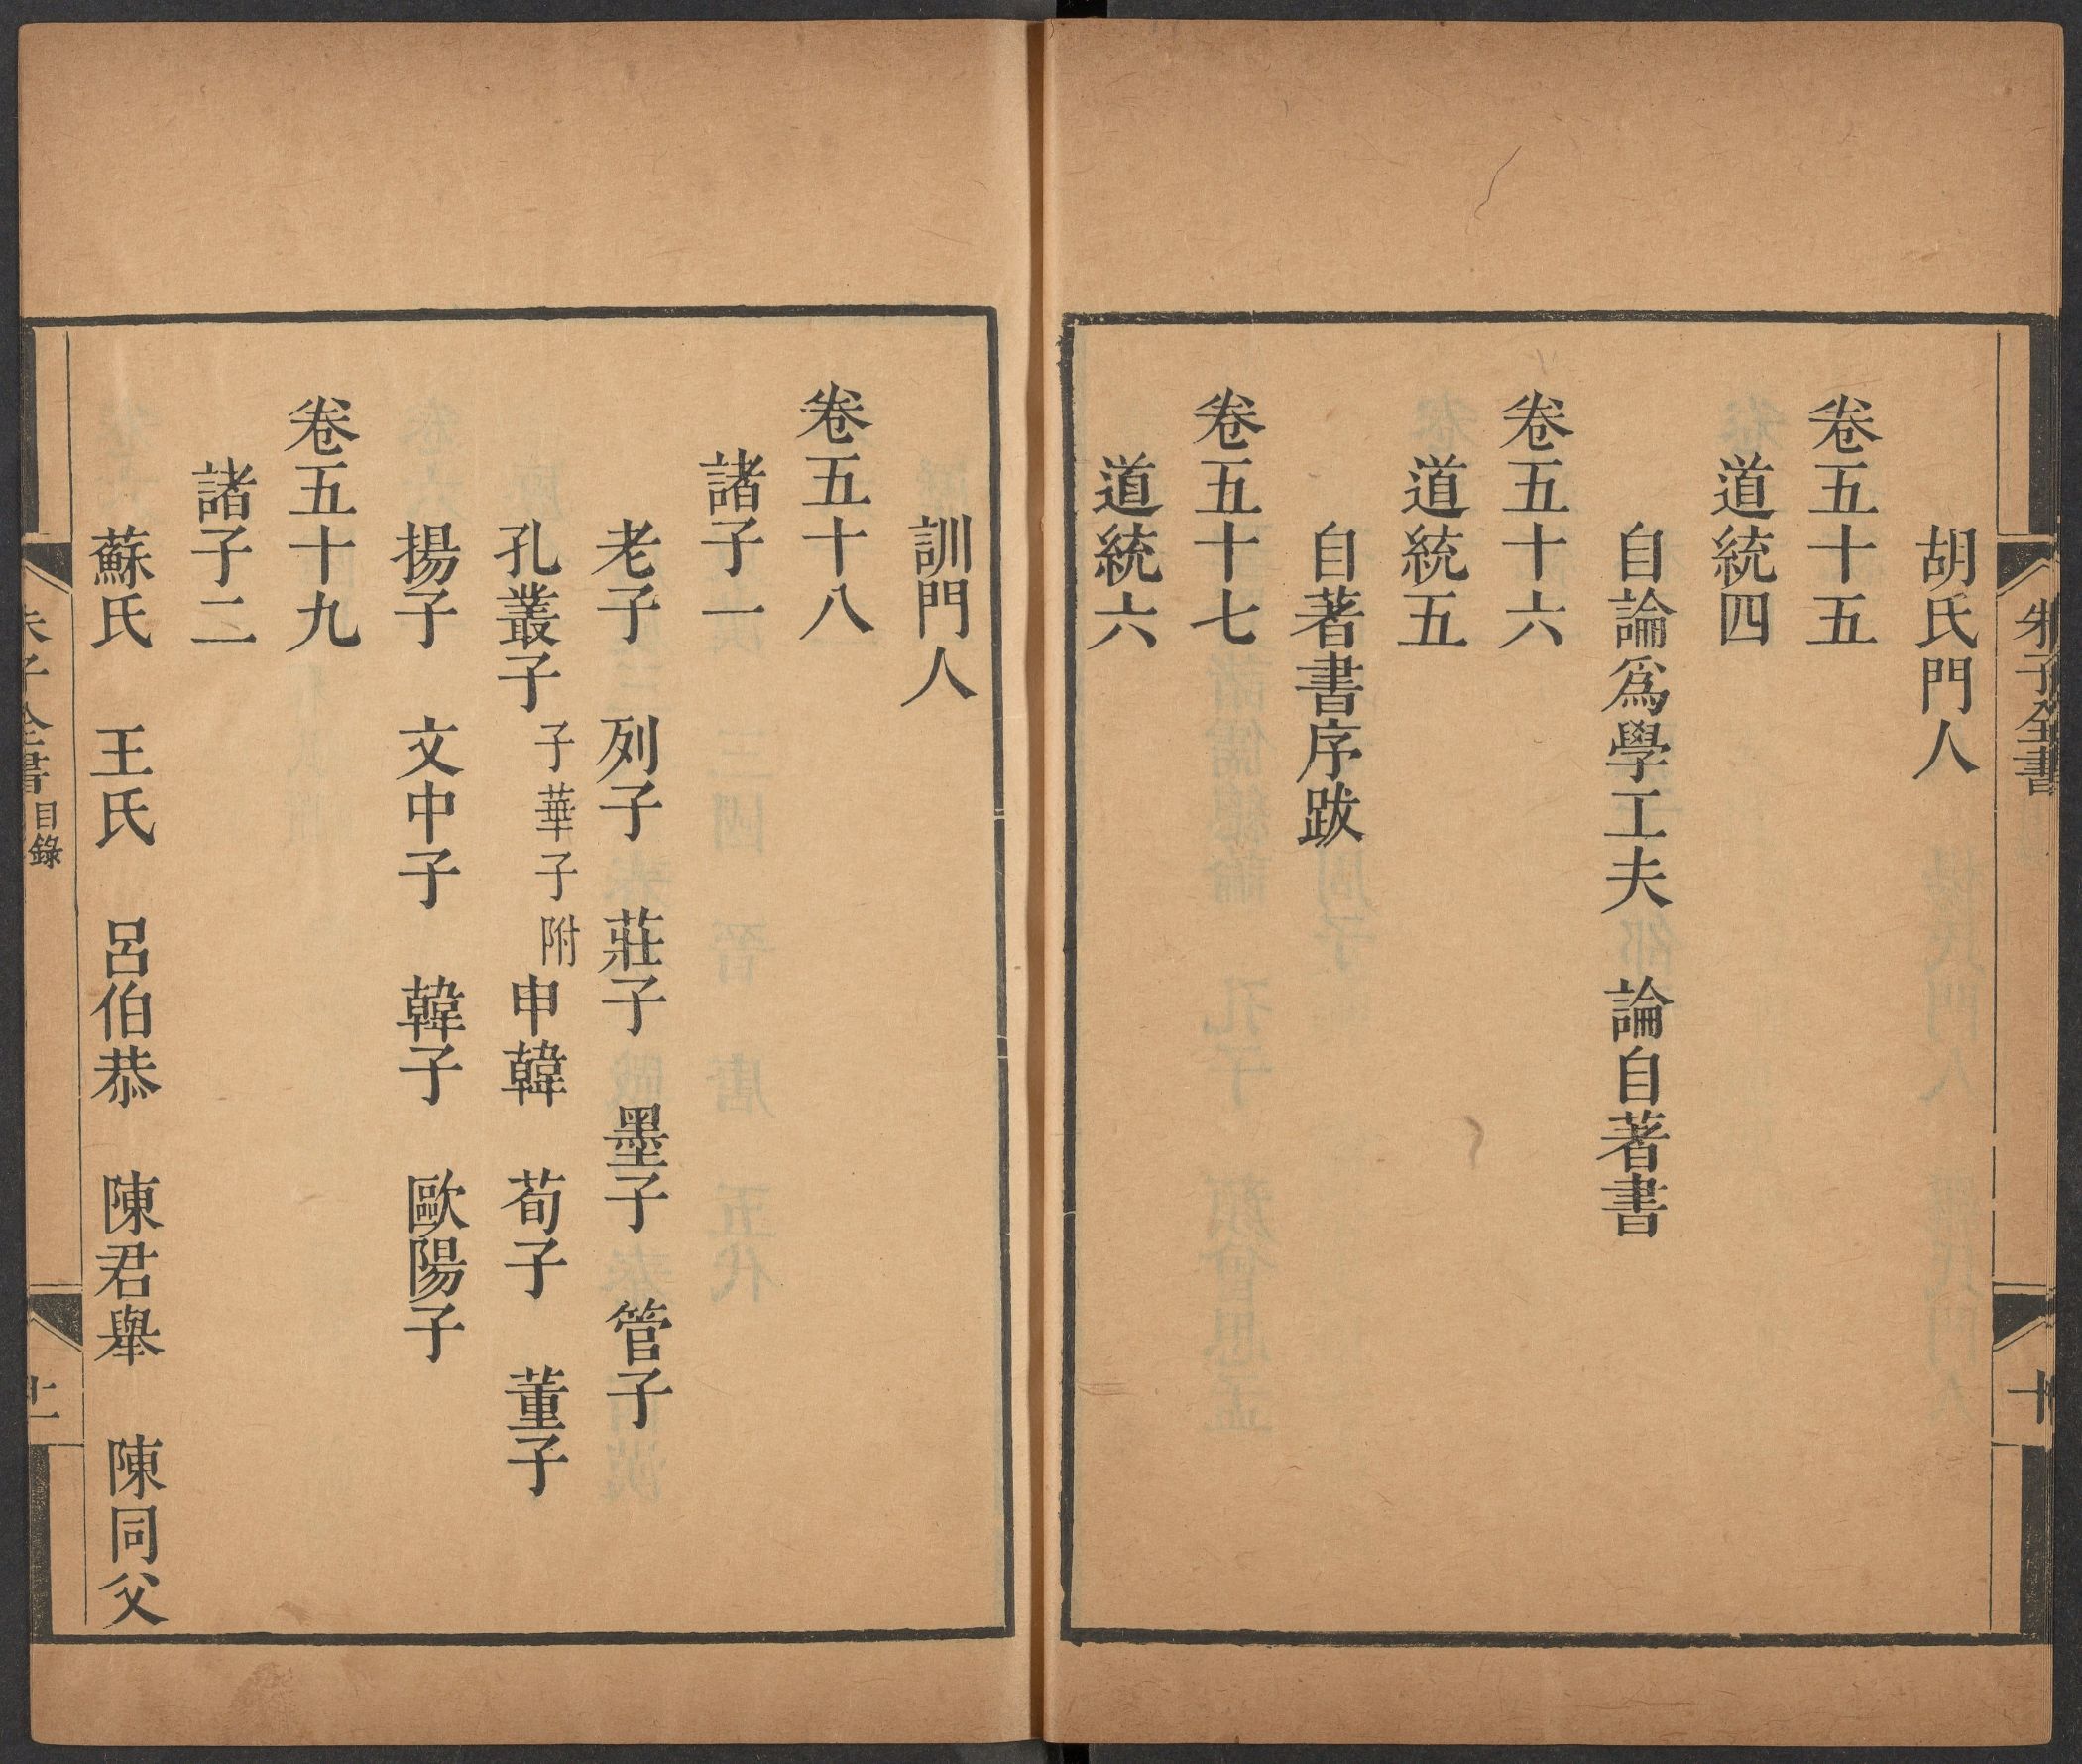 朱子全書
十
胡氏門人
卷五十五
道統四
自論爲學工夫　論自著書
卷五十六
道統五
自著書序跋
卷五十七
道統六
訓門人
卷五十八
諸子一
老子　列子　莊子　墨子　管子
孔叢子 子華子附 申韓　荀子　董子
揚子　文中子　韓子　歐陽子
卷五十九
諸子二
蘇氏　王氏　呂伯恭　陳君舉　陳同父
朱子全書 目錄